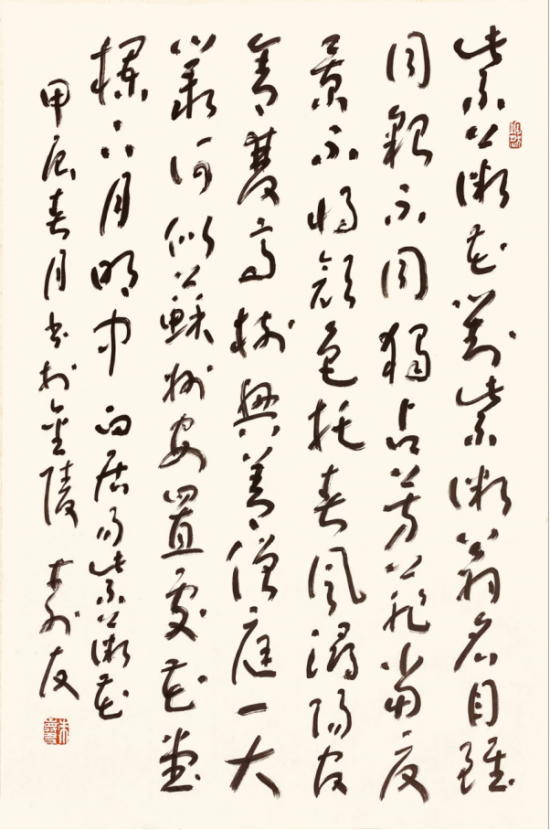 紫薇花對紫微翁名目雖
同貌不同獨占芳菲當夏
景不將顏色托春風潯陽官
舍雙高樹興善僧庭一大
叢何似蘇州安置處花堂
欄下月明中 白居易紫薇花
甲辰春月書於金陵 壽友